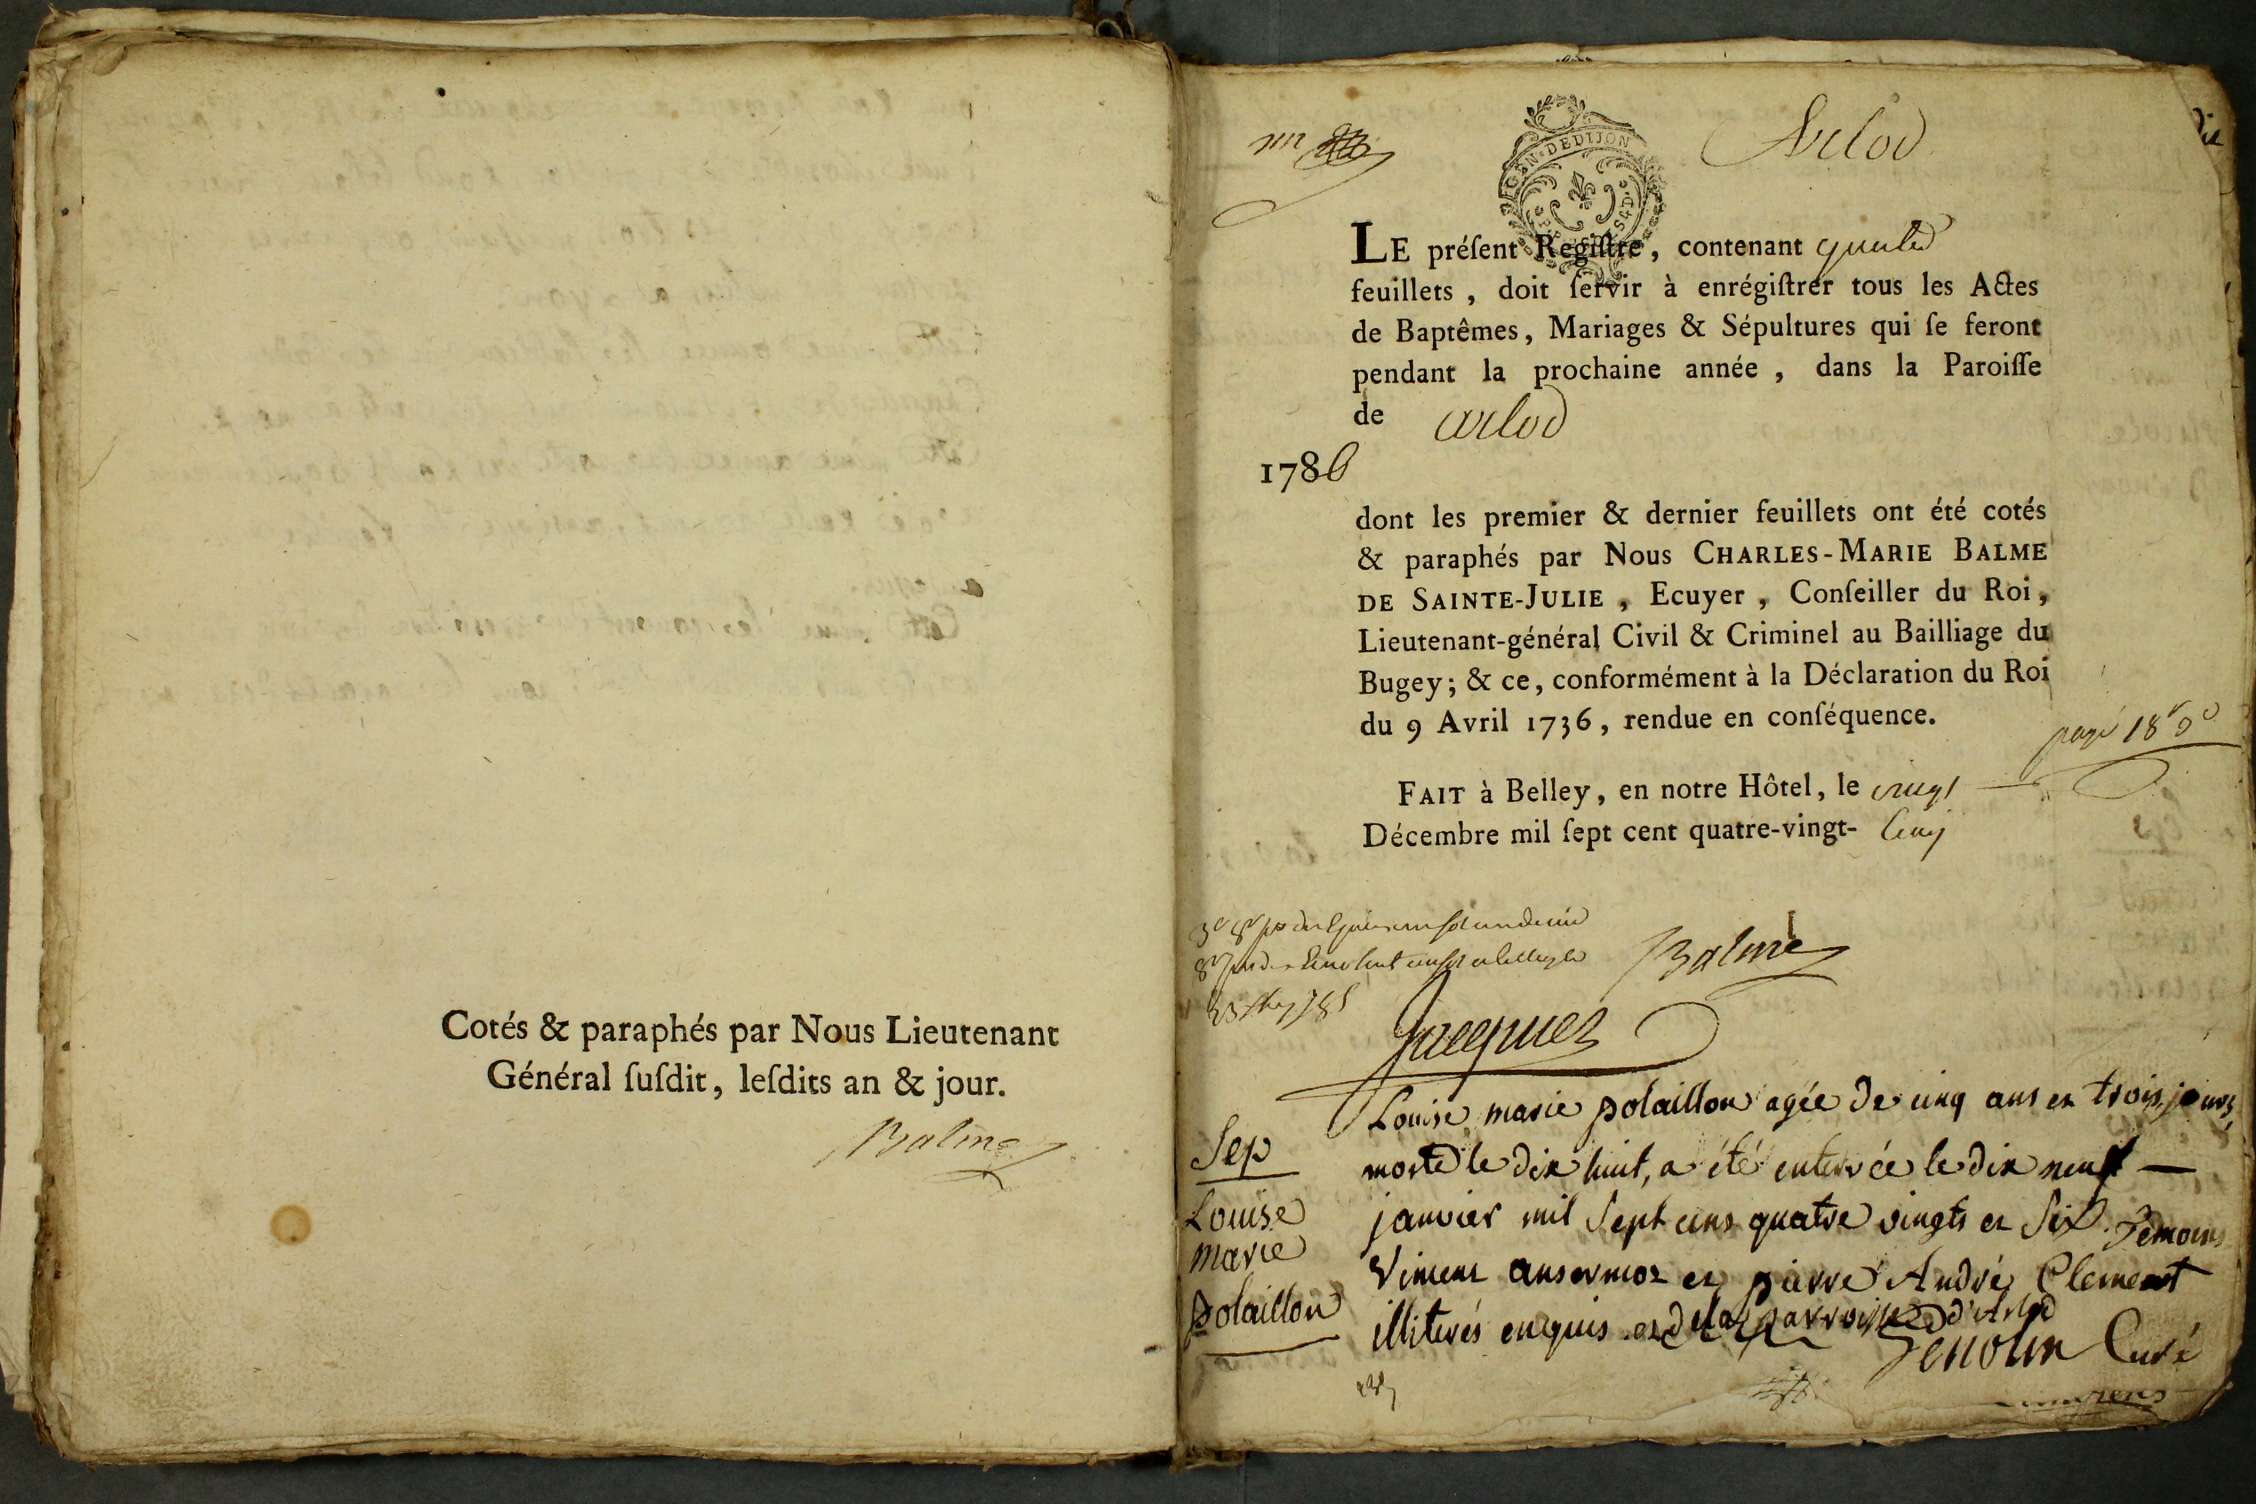 Cotés & paraphés par Nous Lieutenant
Général ſuſdit, leſdits an & jour.
Balme
Arlod
GEN·DE DIJON
LE préſent Regiſtre, contenant quatre
feuillets, doit ſervir à enrégiſtrer tous les Actes
de Baptêmes, Mariages & Sépultures qui ſe feront
pendant la prochaine année, dans la Paroiſſe
de arlod
1786
dont les premier & dernier feuillets ont été cotés
& paraphés par Nous CHARLES-MARIE BALME
DE SAINTE-JULIE, Ecuyer, Conſeiller du Roi,
Lieutenant-général Civil & Criminel au Bailliage du
Bugey; & ce, conformément à la Déclaration du Roi
du 9 Avril 1736, rendue en conſéquence.
page 18
FAIT à Belley, en notre Hôtel, le vingt
Décembre mil ſept cent quatre-vingt- cinq
Balme
Jacques
Sep
Louise
marie
polaillon
Louise marie polaillon agée de cinq ans et trois jours
morte le dix huit, a été enterrée le dix neuf
janvier mil sept cens quatre vingts et six. Témoins
Vincent ansermoz et pierre André Clement
illiterés enquis et de la parroisse d'Arlod
Genolin Curé